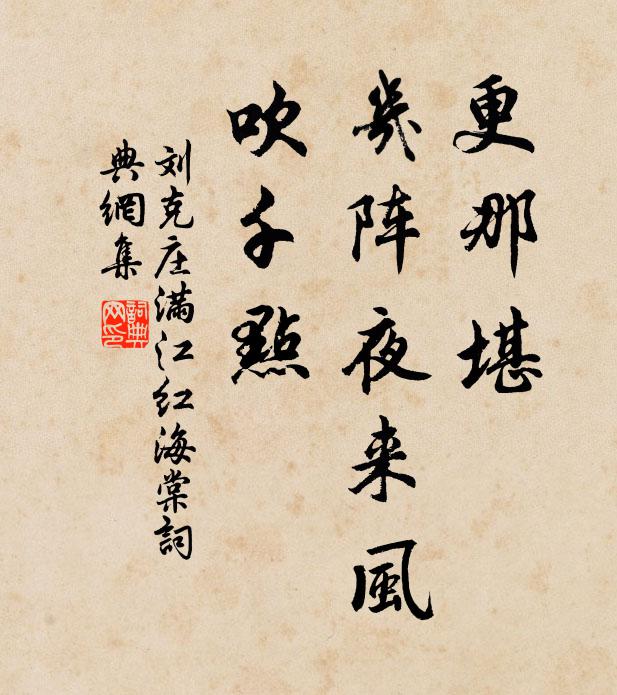 更那堪
幾阵夜来風
吹千點
刘克庄满江红海棠詞
典網集
詞典
网印